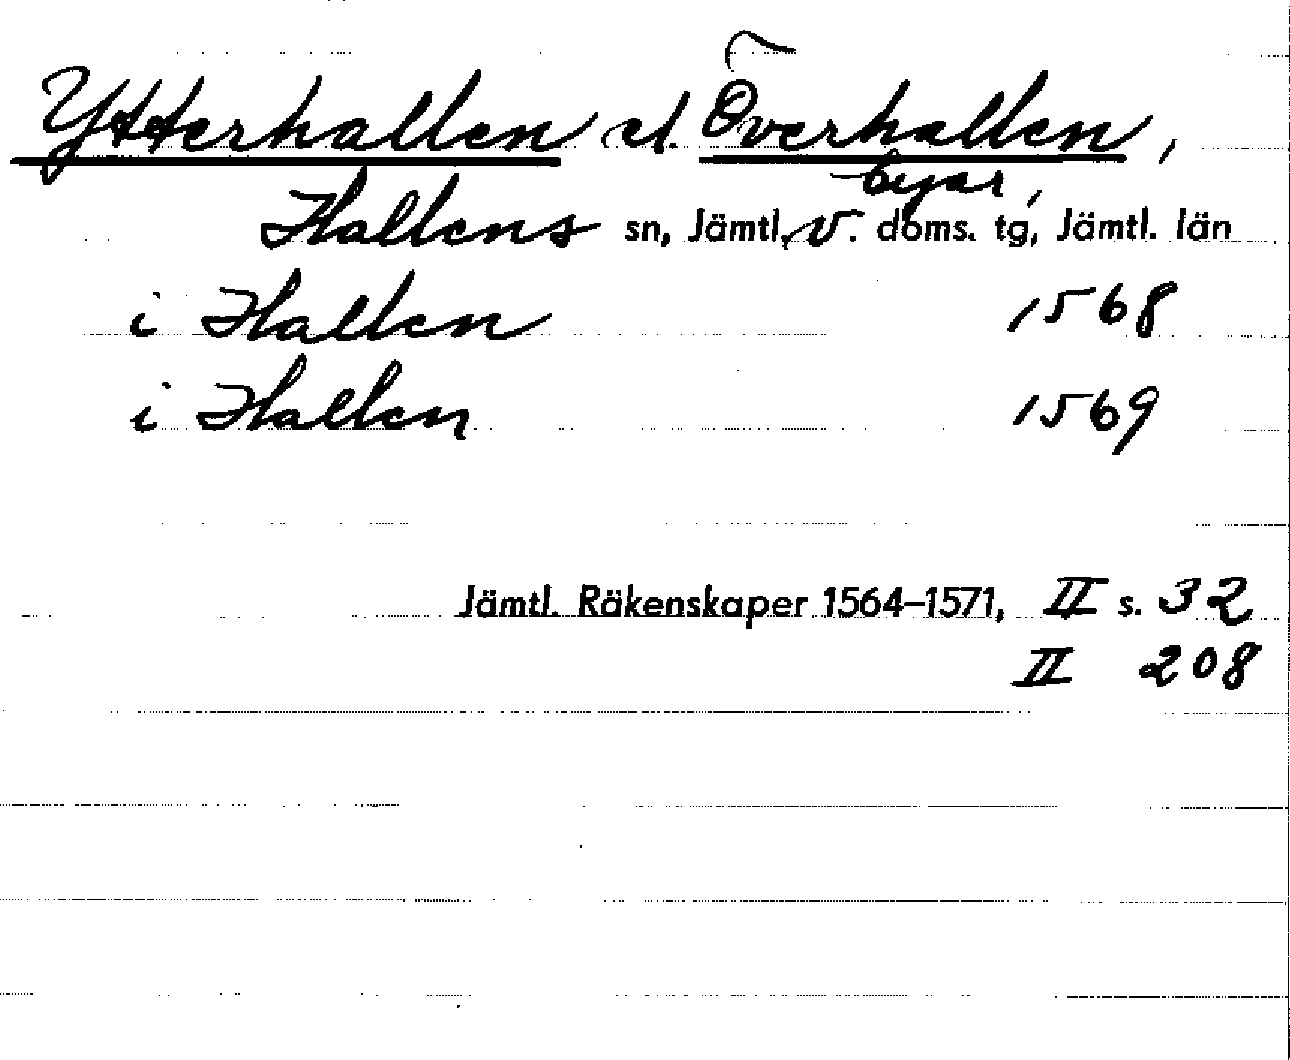 Ytterhallen el. Överhallen,
byar,
Hallens sn, Jämtl. v. doms. tg, Jämtl. län
i Hallen 1568
i Hallen 1569
Jämtl. Räkenskaper 1564–1571, II s. 32
II 208